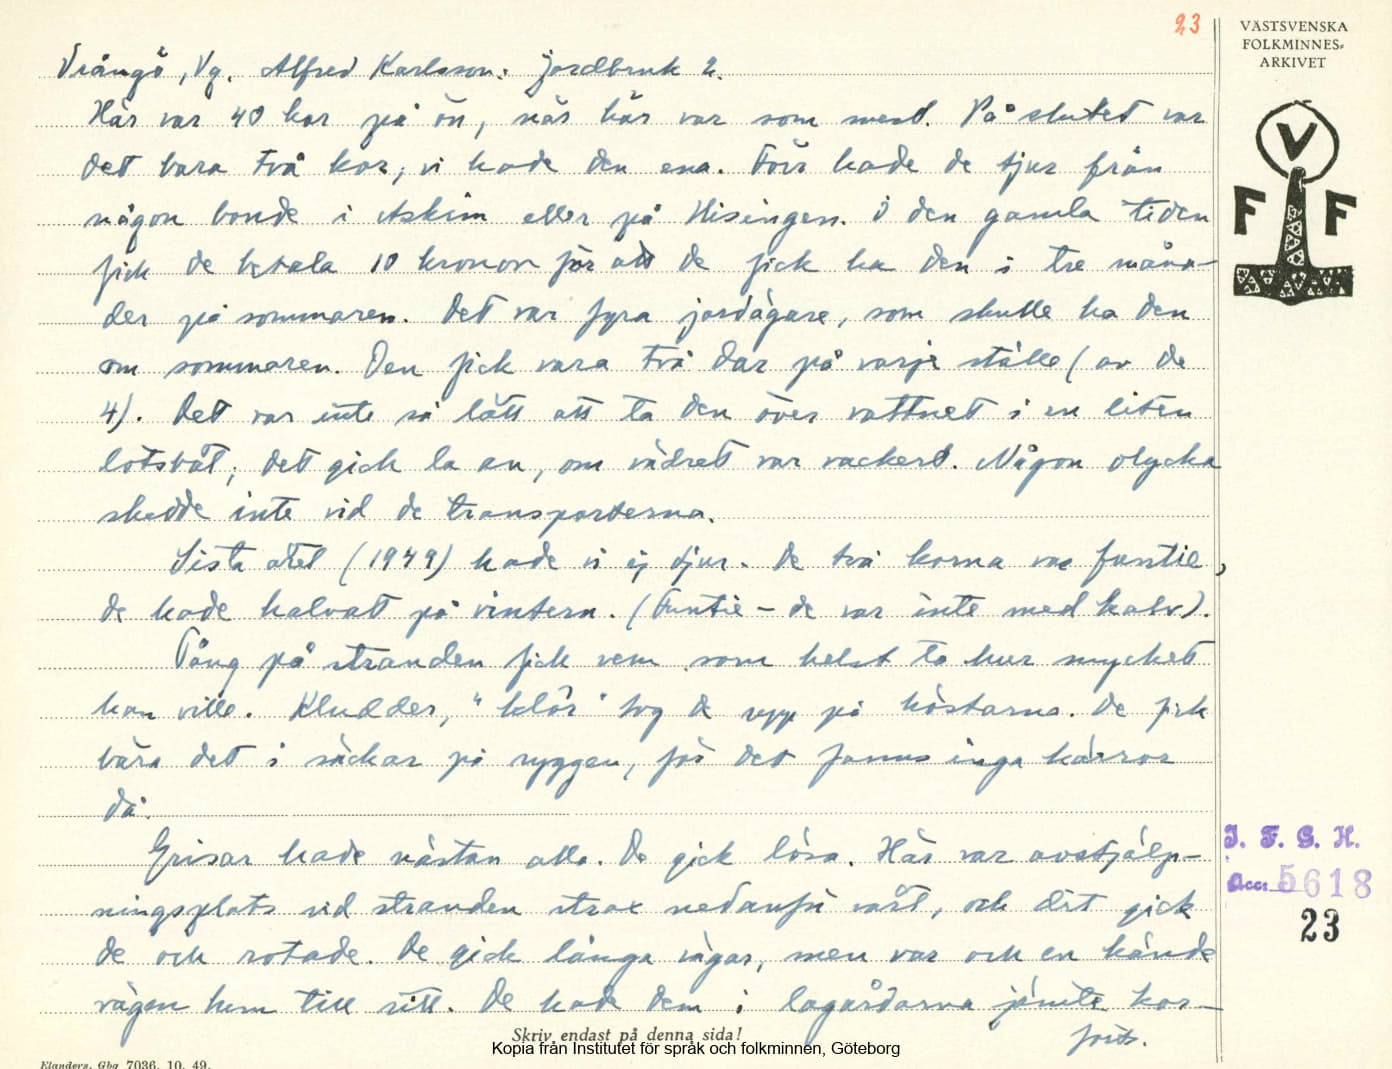 23
VÄSTSVENSKA
FOLKMINNES=
ARKIVET
V
F F
Vrångö, Vg. Alfred Karlsson. Jordbruk 2.
Här var 40 kor på ön, när här var som mest. På slutet var
det bara två kor, vi hade den ena. Förr hade de tjur från
någon bonde i Askim eller på Hisingen. I den gamla tiden
fick de betala 10 kronor för att de fick ha den i tre måna-
der på sommaren. Det var fyra jordägare, som skulle ha den
om sommaren. Den fick vara två dar på varje ställe (av de
4). Det var inte så lätt att ta den över vattnet i en liten
lotsbåt; det gick la an, om vädret var vackert. Någon olycka
skedde inte vid de transporterna.
Sista året (1949) hade vi ej tjur. De två korna var funtie,
de hade kalvatt på vintern. (Funtie – de var inte med kalv).
Tång på stranden fick vem som helst ta hur mycket
han ville. Kludder, "klör" tog de upp på höstarna. De fick
bära det i säckar på ryggen, för det fanns inga kärror
då.
Grisar hade nästan alla. De gick lösa. Här var avstjälp-
ningsplats vid stranden strax nedanför vårt, och dit gick
de och rotade. De gick långa vägar, men var och en kände
vägen hem till sitt. De hade dem i lagårdarna jämte kor-
forts.
Skriv endast på denna sida!
Kopia från Institutet för språk och folkminnen, Göteborg
Elanders, Gbg 7036. 10. 49.
I. F. G. H.
Acc: 5618
23